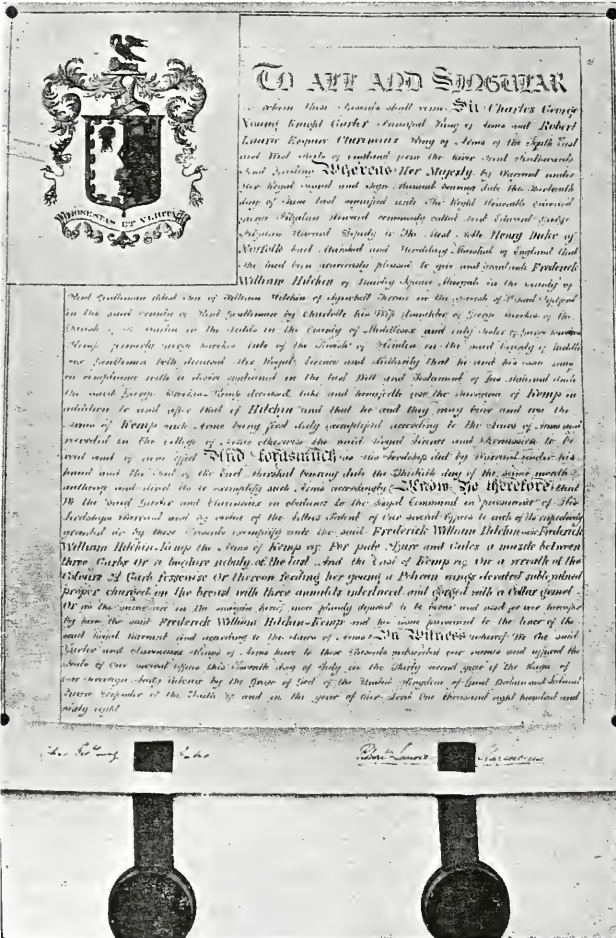 HONESTAS ET VERITAS
TO ALL AND SINGULAR
to whom these Presents shall come Sir Charles George
Young Knight Garter Principal King of Arms and Robert
Laurie Esquire Clarenceux King of Arms of the South East
and West Parts of England from the River Trent Southwards
Send Greeting Whereas Her Majesty by Warrant under
Her Royal Signet and Sign Manual bearing date the
day of June last signified unto The Right Honourable Edward
George Fitzalan Howard commonly called Lord Edward George
Fitzalan Howard Deputy to The Most Noble Henry Duke of
Norfolk Earl Marshal and Hereditary Marshal of England that
She had been graciously pleased to give and grant unto Frederick
William Hitchin of Square Margate in the County of
Kent Gentleman eldest son of William Hitchin of in the Parish of
in the said County of Kent Gentleman by Charlotte his Wife daughter of George of the
Parish of St. Martin in the Fields in the County of Middlesex and only Sister of George
Kemp formerly George late of the Parish of in the said County of Middle
sex Gentleman both deceased Her Royal licence and Authority that he and his issue may
in compliance with a desire contained in the last Will and Testament of his maternal Uncle
the said George Kemp deceased take and henceforth use the Surname of Kemp in
addition to and after that of Hitchin and that he and they may bear and use the
Arms of Kemp such Arms being first duly exemplified according to the Laws of Arms and
recorded in the College of Arms otherwise the said Royal Licence and Permission to be
void and of none effect And forasmuch as his Lordship did by Warrant under his
hand and the Seal of the Earl Marshal bearing date the Thirtieth day of the same month
authorize and direct Us to exemplify such Arms accordingly Know Ye therefore that
We the said Garter and Clarenceux in obedience to the Royal Command in pursuance of His
Lordships Warrant and by virtue of the Letters Patent of Our several Offices to each of Us respectively
granted do by these Presents exemplify unto the said Frederick William Hitchin now Frederick
William Hitchin-Kemp the Arms of Kemp viz. Per pale Azure and Gules a muscle between
three Garbs Or a bordure nebuly of the last And the Crest of Kemp viz. On a wreath of the
Colours A Garb fessewise Or thereon feeding her young a Pelican wings elevated Sable vulned
proper charged on the breast with three annulets interlaced and gorged with a Collar gemel
Or as the same are in the margin hereof more plainly depicted to be borne and used for ever hereafter
by him the said Frederick William Hitchin-Kemp and his issue pursuant to the tenor of the
said Royal Warrant and according to the Laws of Arms In Witness whereof We the said
Garter and Clarenceux Kings of Arms have to these Presents subscribed our names and affixed the
Seals of Our several Offices this day of July in the Thirty second year of the Reign of
Our Sovereign Lady Victoria by the Grace of God of the United Kingdom of Great Britain and Ireland
Queen Defender of the Faith &c. and in the year of Our Lord One thousand eight hundred and
sixty eight
Young Garter
Robert Laurie Clarenceux